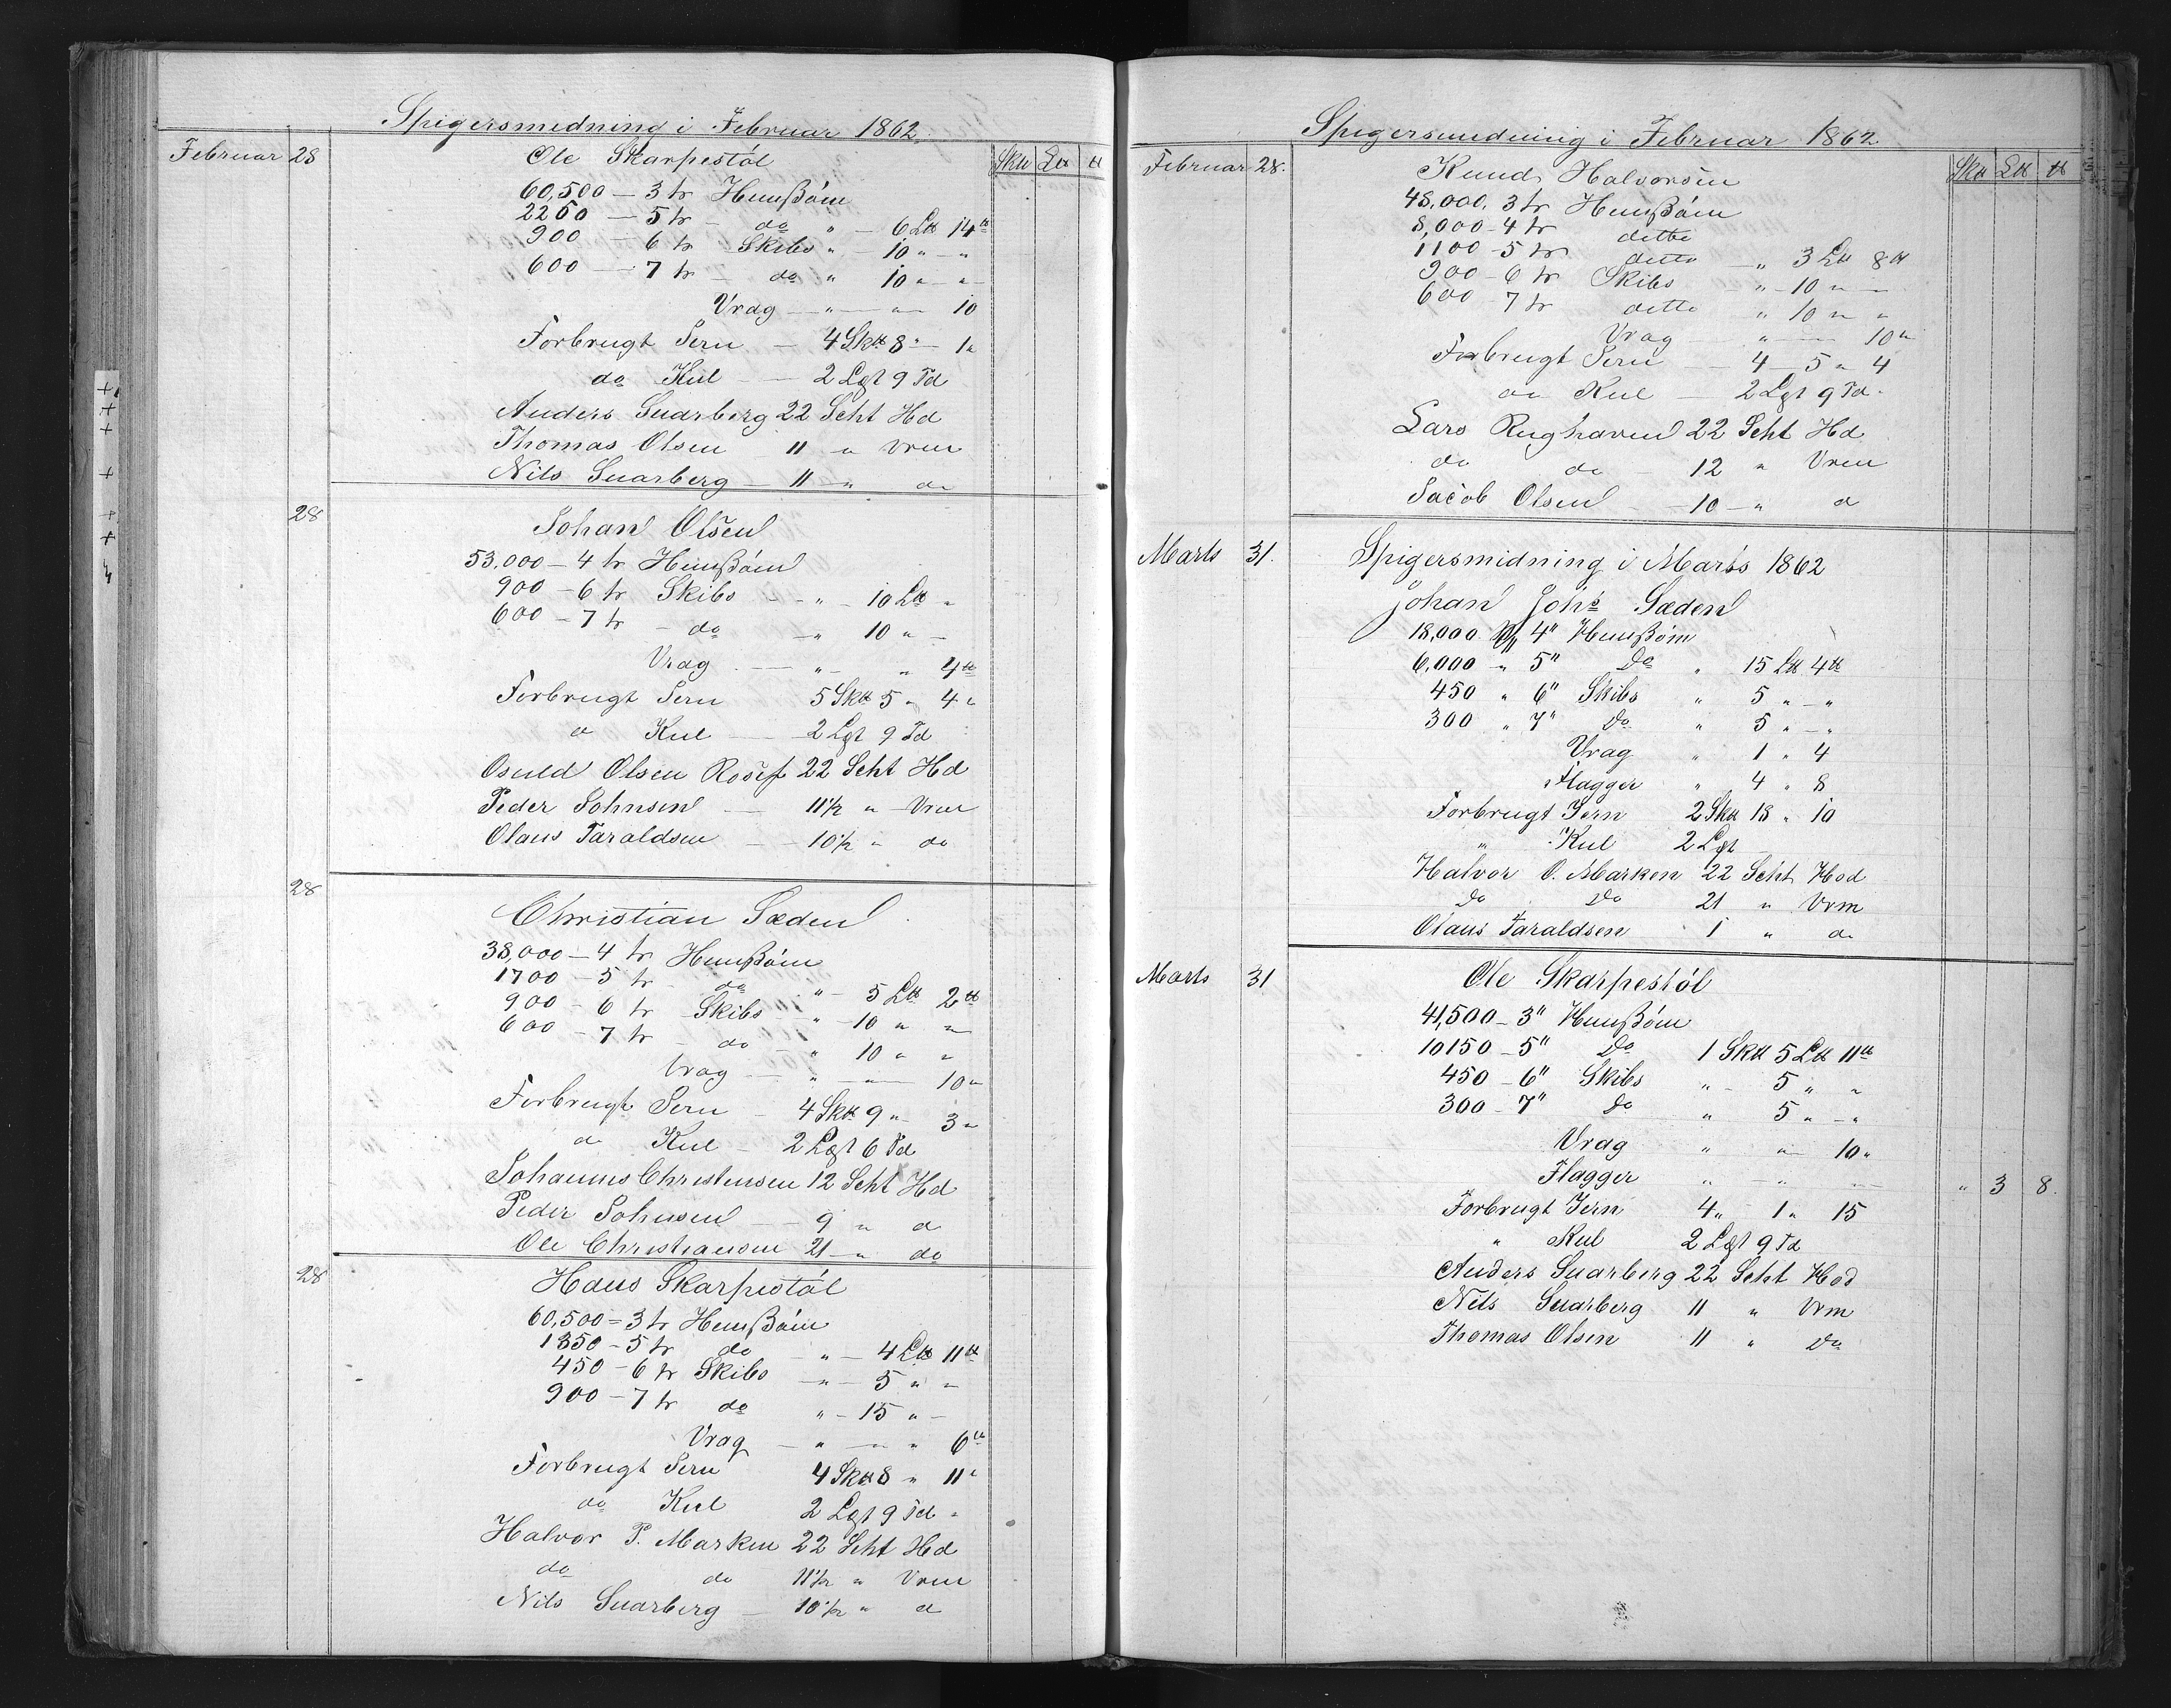 Spigersmedning i Februar 1862.
Sk℔ L℔ ℔
Februar 28 Ole Skarpestöl
60,500 — 3 tr Hæußöm
2250 — 5 tr — do " — 6 L℔ 14 ℔
900 — 6 tr Skibs " — 10 " — "
600 — 7 tr — do " 10 " — "
Vrag — " — " — 10
Forbrugt Jern — 4 Sk℔ 8 " — 1 "
do Kul — — 2 Lgt 9 Td
Anders Snarberg 22 Scht Hd
Thomas Olsen 11 " Vrm
Nils Snarberg — 11 — " do
28 Johan Olsen
53,000 — 4 tr Hæußöm
900 — 6 tr Skibs — " — 10 L℔ "
600 — 7 tr — do — " 10 " —
Vrag — " — " 4 ℔
Forbrugt Jern 5 Sk℔ 5 " 4 "
d Kul — 2 Lgt 9 Td
Osuld Olsen 22 Scht Hd
Peder Johnsen — 11½ " Vrm
Olaus Taraldsen — 10½ " do
28 Christian Sæden
38,000 — 4 tr Hæußöm
1700 — 5 tr do " — 5 L℔ 2 ℔
900 — 6 tr Skibs " — 10 " "
600 — 7 tr — do — " 10 " "
Vrag — " — " 10 "
Forbrugt Jern — 4 Sk℔ 9 " 3 "
d Kul — 2 Lgt 6 Td
Johannes Christensen 12 Scht Hd
Peder Johnsen — 9 " d
Ole Christiansen 21 — " do
28 Hans Skarpestöl
60,500 = 3 tr Hæußöm
1350 — 5 tr do " — 4 L℔ 11 ℔
450 — 6 tr Skibs — " — 5 " "
900 — 7 tr do " — 15 " —
Vrag — " — " " 6 ℔
Forbrugt Jern 4 Sk℔ 8 " 11 "
do Kul 2 Lgt 9 Td "
Halvor P. Marken 22 Scht Hd
do do 11½ " Vrm
Nils Snarberg — 10½ " d
Spigersmedning i Februar 1862
Sk℔ L℔ ℔
Februar 28. Knud Halvorsen
48,000. 3 tr Hæußöm
8,000 — 4 tr ditto
1100 — 5 tr ditto — " 3 L℔ 8 ℔
900 — 6 tr Skibs " — 10 " —
600 7 tr ditto " 10 " "
Vrag " — — 10 "
Forbrugt Jern — 4 — 5 " 4
do Kul — 2 Lgt 9 Td.
Lars Rughaven 22 Scht Hd
do do — 12 " Vrm
Jacob Olsen — 10 — " d
Marts 31. Spigersmidning i Marts 1862
Johan Johs Sæden
18,000 4" Hæußöm
6,000 " 5" Do " 15 L℔ 4 ℔
450 " 6" Skibs " 5 " — "
300 " 7" Do " 5 " — "
Vrag " 1 " 4
Flagger " 4 " 8
Forbrugt Jern 2 Sk℔ 18 " 10
" Kul 2 Lgt
Halvor O. Marken 22 Scht Hod
Do Do 21 " Vrm
Olaus Taraldsen 1 " do
Marts 31 Ole Skarpestöl
41,500 — 3" Hæußöm
10150 — 5" Do 1 Sk℔ 5 L℔ 11 ℔
450 — 6" Skibs " — 5 " "
300 — 7" Do " 5 " — "
Vrag " " — 10 "
Flagger " — " — " 3 8.
Forbrugt Jern 4 " — 1 " 15
" Kul 2 Lgt 9 Td
Anders Snarberg 22 Scht Hod
Nils Snarberg 11 " Vrm
Thomas Olsen 11 " Do